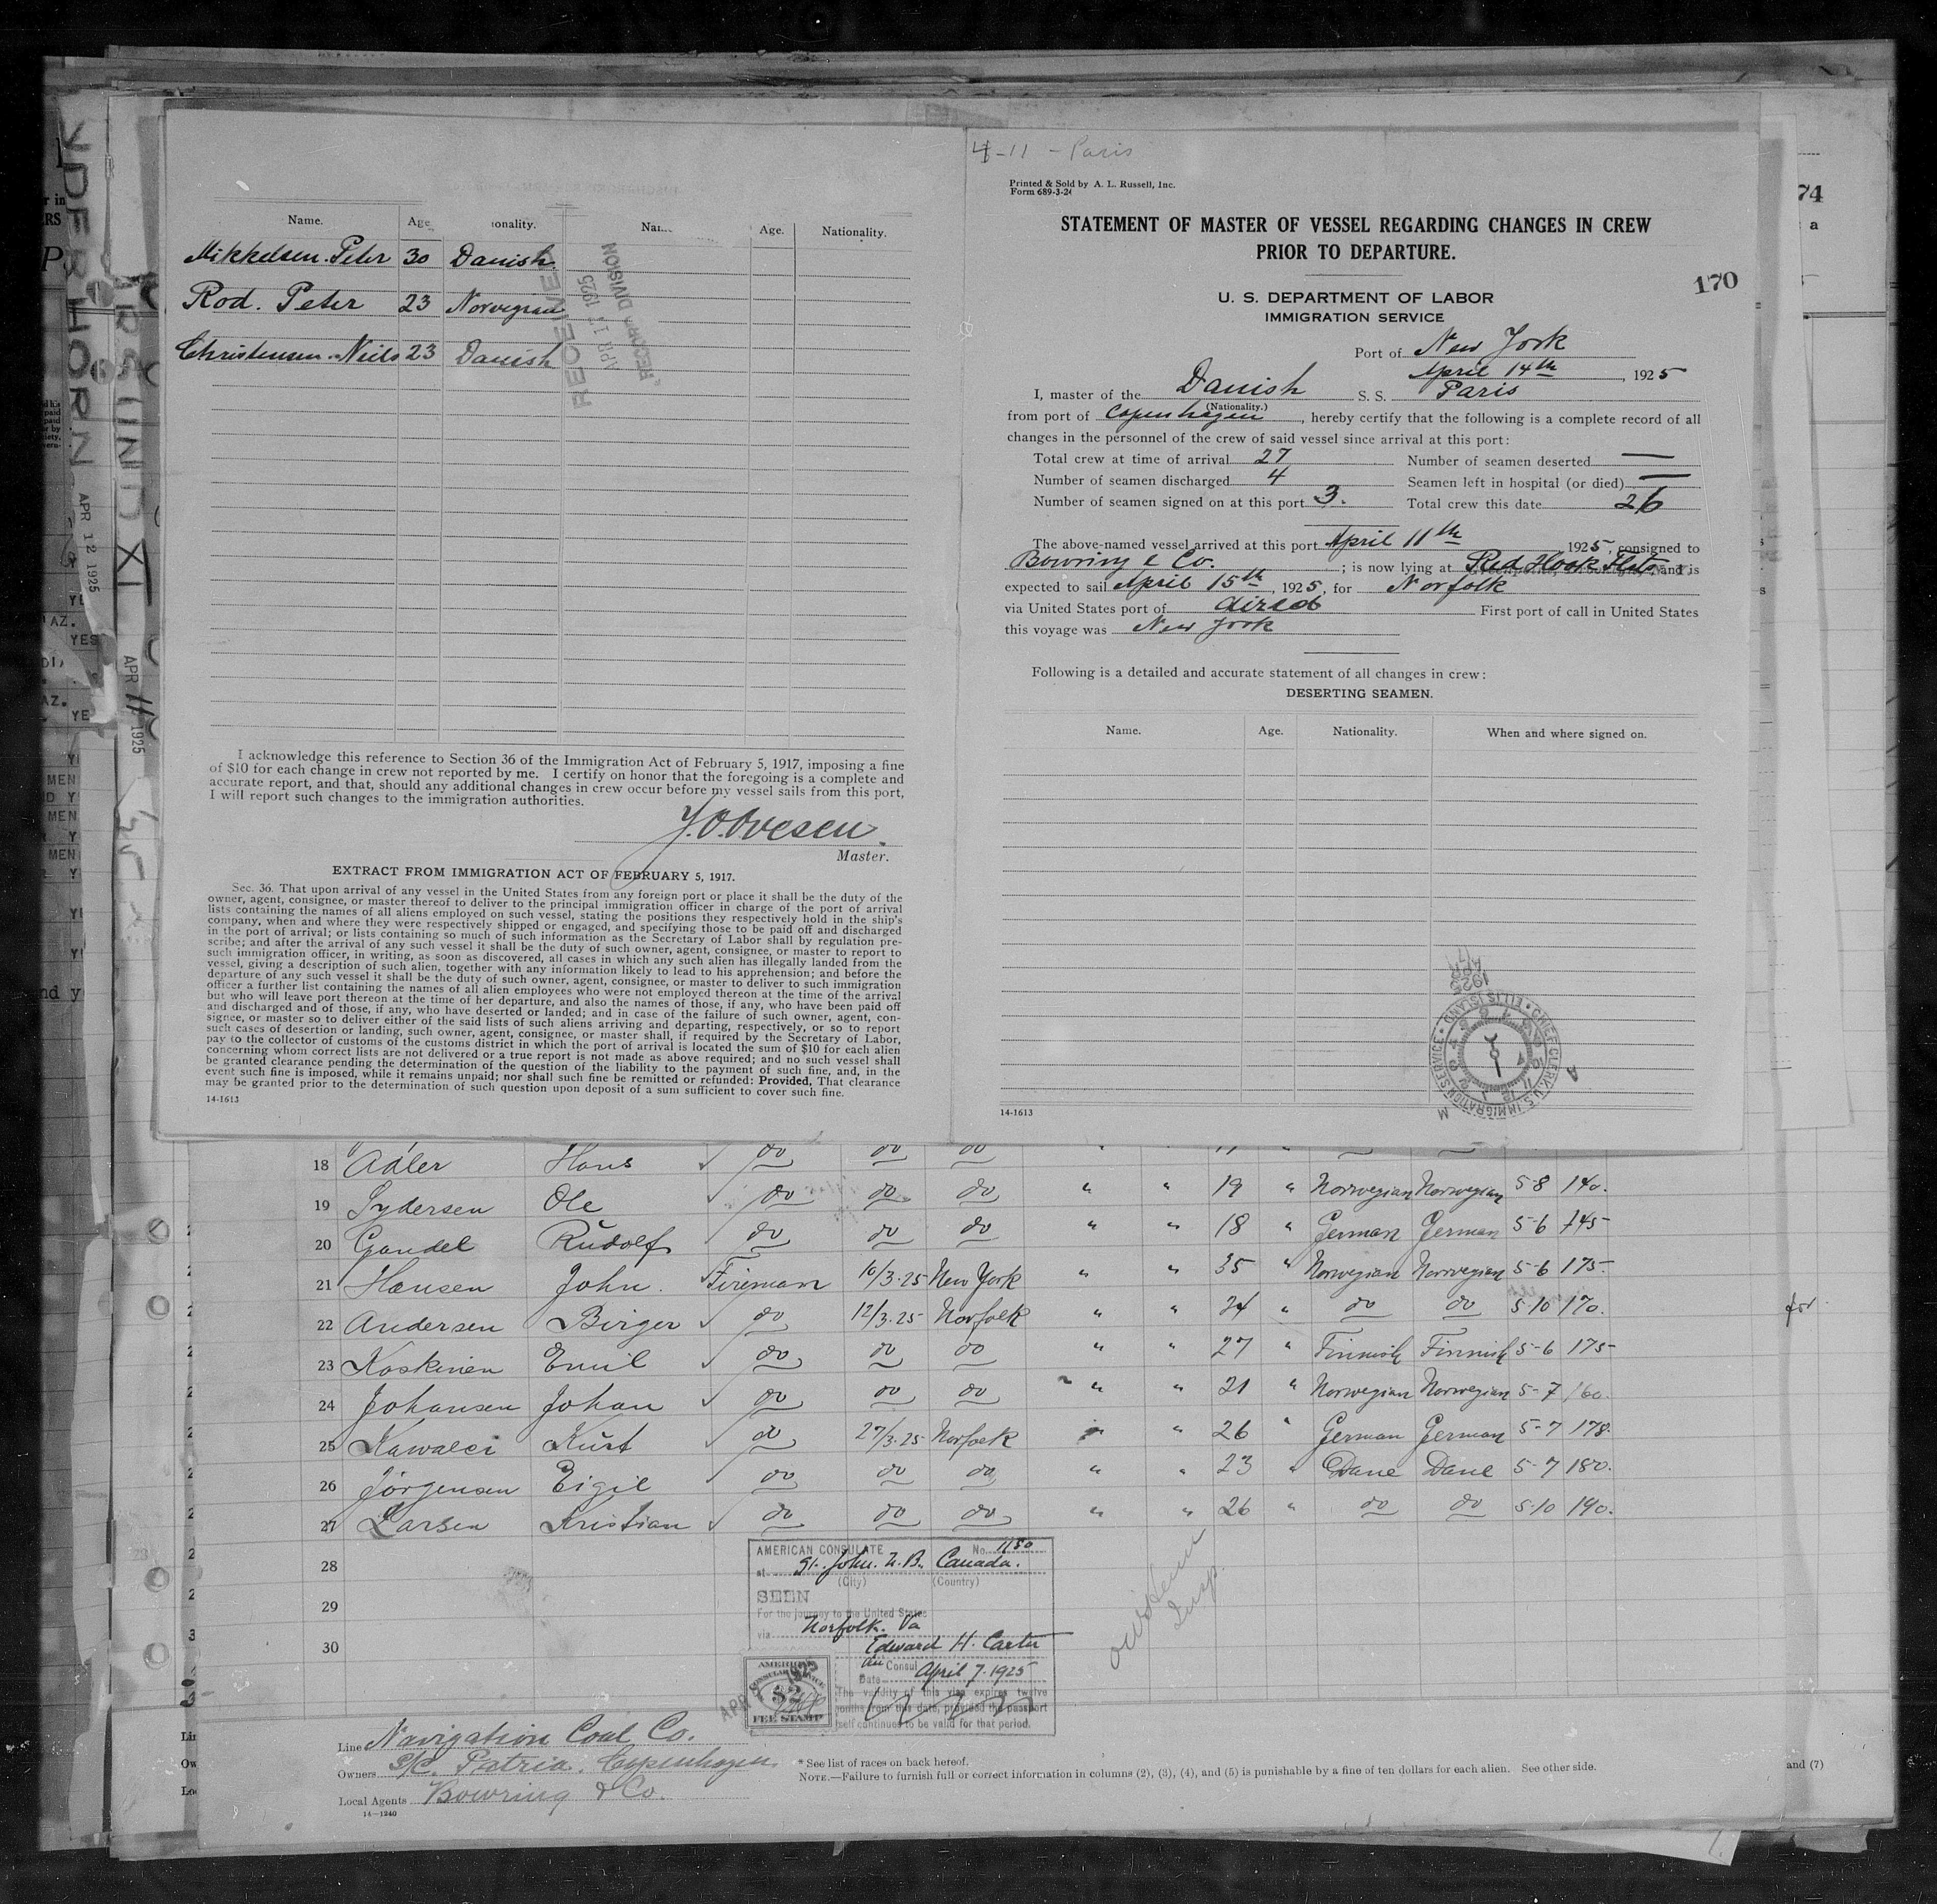 Name. Age. Nationality.
Mikkelsen. Peter 30 Danish
Rod. Peter 23 Norvegian
Christensen. Niels 23 Danish
RECEIVED
APR 17 1925
RECORD DIVISION
I acknowledge this reference to Section 36 of the Immigration Act of February 5, 1917, imposing a fine
of $10 for each change in crew not reported by me. I certify on honor that the foregoing is a complete and
accurate report, and that, should any additional changes in crew occur before my vessel sails from this port,
I will report such changes to the immigration authorities.
J.O.Ovesen.
Master.
EXTRACT FROM IMMIGRATION ACT OF FEBRUARY 5, 1917.
Sec. 36. That upon arrival of any vessel in the United States from any foreign port or place it shall be the duty of the
owner, agent, consignee, or master thereof to deliver to the principal immigration officer in charge of the port of arrival
lists containing the names of all aliens employed on such vessel, stating the positions they respectively hold in the ship's
company, when and where they were respectively shipped or engaged, and specifying those to be paid off and discharged
in the port of arrival; or lists containing so much of such information as the Secretary of Labor shall by regulation pre-
scribe; and after the arrival of any such vessel it shall be the duty of such owner, agent, consignee, or master to report to
such immigration officer, in writing, as soon as discovered, all cases in which any such alien has illegally landed from the
vessel, giving a description of such alien, together with any information likely to lead to his apprehension; and before the
departure of any such vessel it shall be the duty of such owner, agent, consignee, or master to deliver to such immigration
officer a further list containing the names of all alien employees who were not employed thereon at the time of the arrival
but who will leave port thereon at the time of her departure, and also the names of those, if any, who have been paid off
and discharged and of those, if any, who have deserted or landed; and in case of the failure of such owner, agent, con-
signee, or master so to deliver either of the said lists of such aliens arriving and departing, respectively, or so to report
such cases of desertion or landing, such owner, agent, consignee, or master shall, if required by the Secretary of Labor,
pay to the collector of customs of the customs district in which the port of arrival is located the sum of $10 for each alien
concerning whom correct lists are not delivered or a true report is not made as above required; and no such vessel shall
be granted clearance pending the determination of the question of the liability to the payment of such fine, and, in the
event such fine is imposed, while it remains unpaid; nor shall such fine be remitted or refunded: Provided, That clearance
may be granted prior to the determination of such question upon deposit of a sum sufficient to cover such fine.
14-1613
4-11 - Paris
Printed & Sold by A. L. Russell, Inc.
Form 689-3-24
STATEMENT OF MASTER OF VESSEL REGARDING CHANGES IN CREW
PRIOR TO DEPARTURE.
170
U. S. DEPARTMENT OF LABOR
IMMIGRATION SERVICE
Port of New York
April 14th, 1925
I, master of the Danish S. S. Paris
(Nationality.)
from port of Copenhagen, hereby certify that the following is a complete record of all
changes in the personnel of the crew of said vessel since arrival at this port:
Total crew at time of arrival 27 Number of seamen deserted —
Number of seamen discharged 4 Seamen left in hospital (or died) —
Number of seamen signed on at this port 3. Total crew this date 26
The above-named vessel arrived at this port April 11th 1925, consigned to
Bowring & Co. ; is now lying at Red Hook Flats, and is
expected to sail April 15th, 1925, for Norfolk
via United States port of direct First port of call in United States
this voyage was New York
Following is a detailed and accurate statement of all changes in crew:
DESERTING SEAMEN.
Name. Age. Nationality. When and where signed on.
APR 1925
CHIEF CLERK, U.S. IMMIGRATION SERVICE ELLIS ISLAND
14-1613
18 Adler Hans do do do
19 Sydersen Ole do do do " " 19 " Norwegian Norwegian 5-8 140.
20 Gandel Rudolf do do do " " 18 " German German 5-6 145
21 Hansen John. Fireman 10/3-25 New York " " 35 " Norwegian Norwegian 5-6 175
22 Andersen Birger do 12/3-25 Norfolk " " 24 " do do 5-10 170.
23 Koskinen Emil do do do " " 27 " Finnish Finnish 5-6 175
24 Johansen Johan do do do " " 21 " Norwegian Norwegian 5-7 160.
25 Kawalci Kurt do 27/3-25 Norfolk " " 26 " German German 5-7 178.
26 Jörgensen Eigil do do do " " 23 " Dane Dane 5-7 180.
27 Larsen Kristian do do do " " 26 " do do 5-10 190.
28
29
30
AMERICAN CONSULATE No. 1180
at St. John. N. B. Canada.
(City) (Country)
SEEN
For the journey to the United States
via Norfolk. Va
Edward H. Carter
Consul
Date April 7, 1925
The validity of this visa expires twelve
months from this date, provided the passport
itself continues to be valid for that period.
AMERICAN
CONSULAR SERVICE
$2
FEE STAMP
Line Navigation Coal Co.
Owners S/C. Patria. Copenhagen
Local Agents Bowring & Co.
14-1240
* See list of races on back hereof.
NOTE.—Failure to furnish full or correct information in columns (2), (3), (4), and (5) is punishable by a fine of ten dollars for each alien. See other side.
and (7)
74
APR 12 1925
APR 11 1925